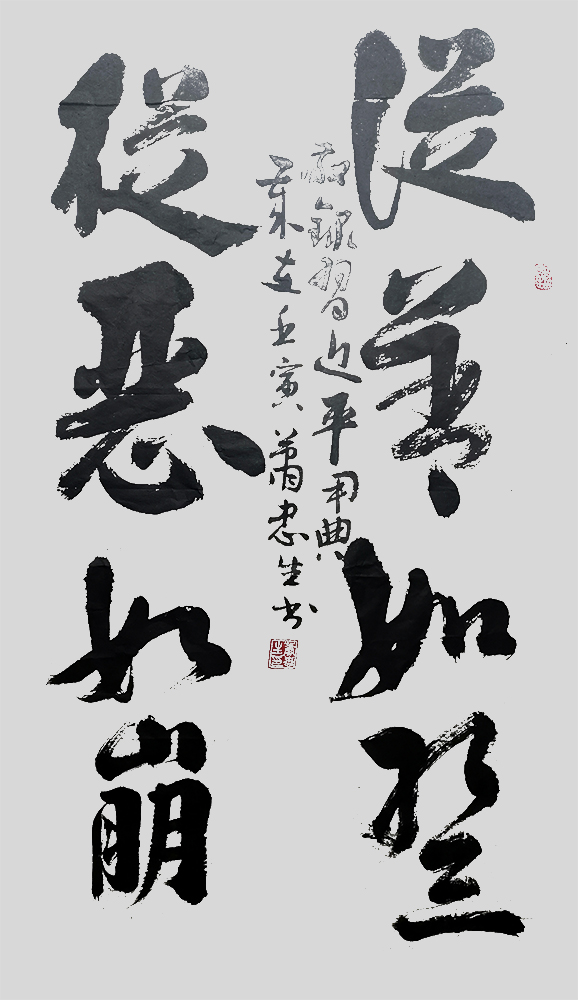 從善如登
從惡如崩
敬錄習近平用典
一集句壬寅蕭忠生书